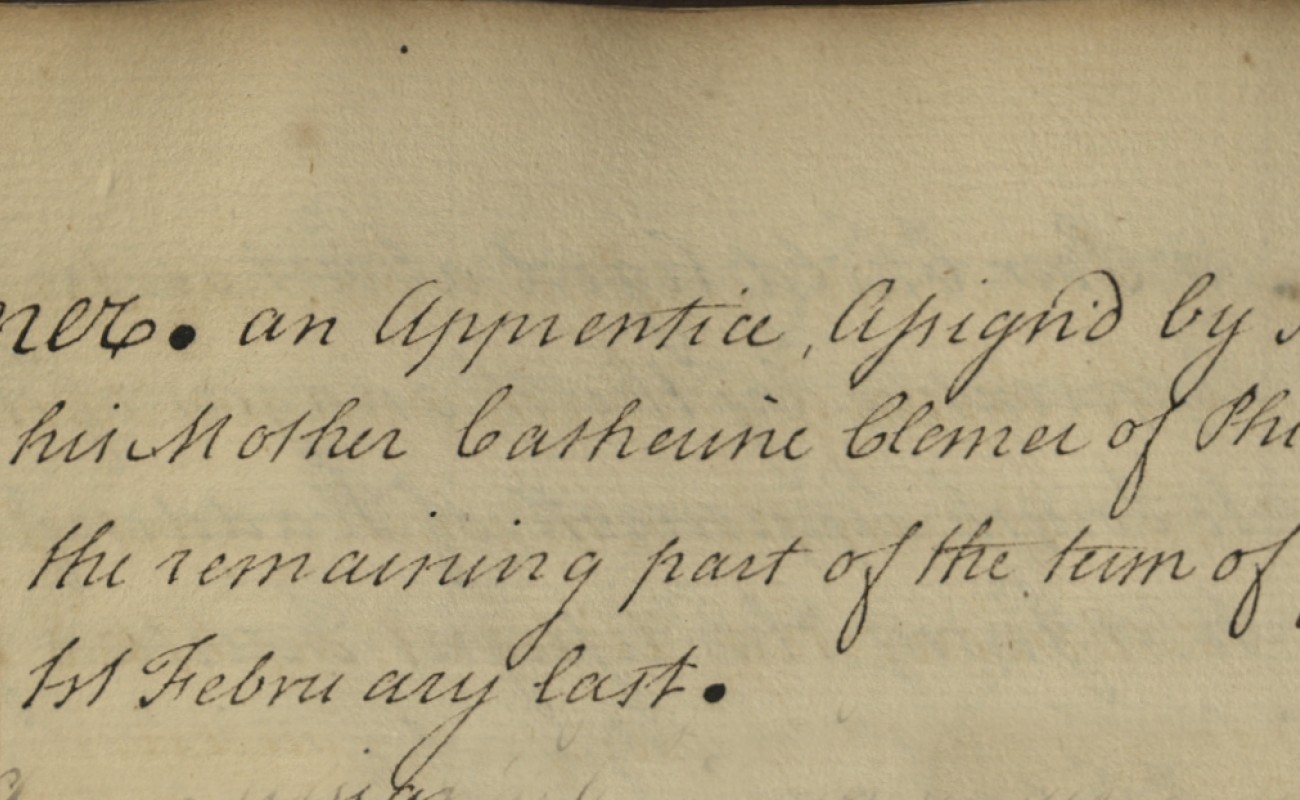 ner. an Apprentice, Assign'd by
his Mother Catherine Clemer of Phi
the remaining part of the term of
1st February last.